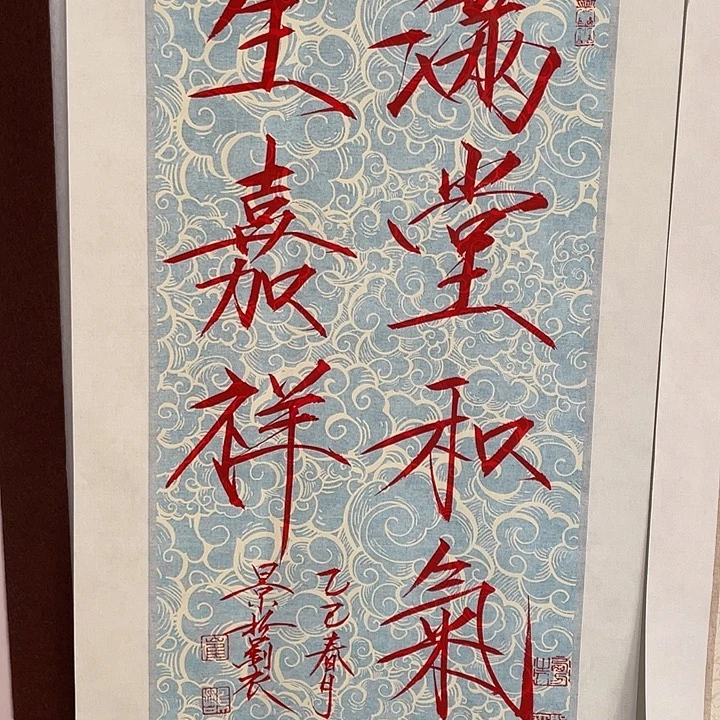 滿堂和氣
生嘉祥
乙巳春月
景